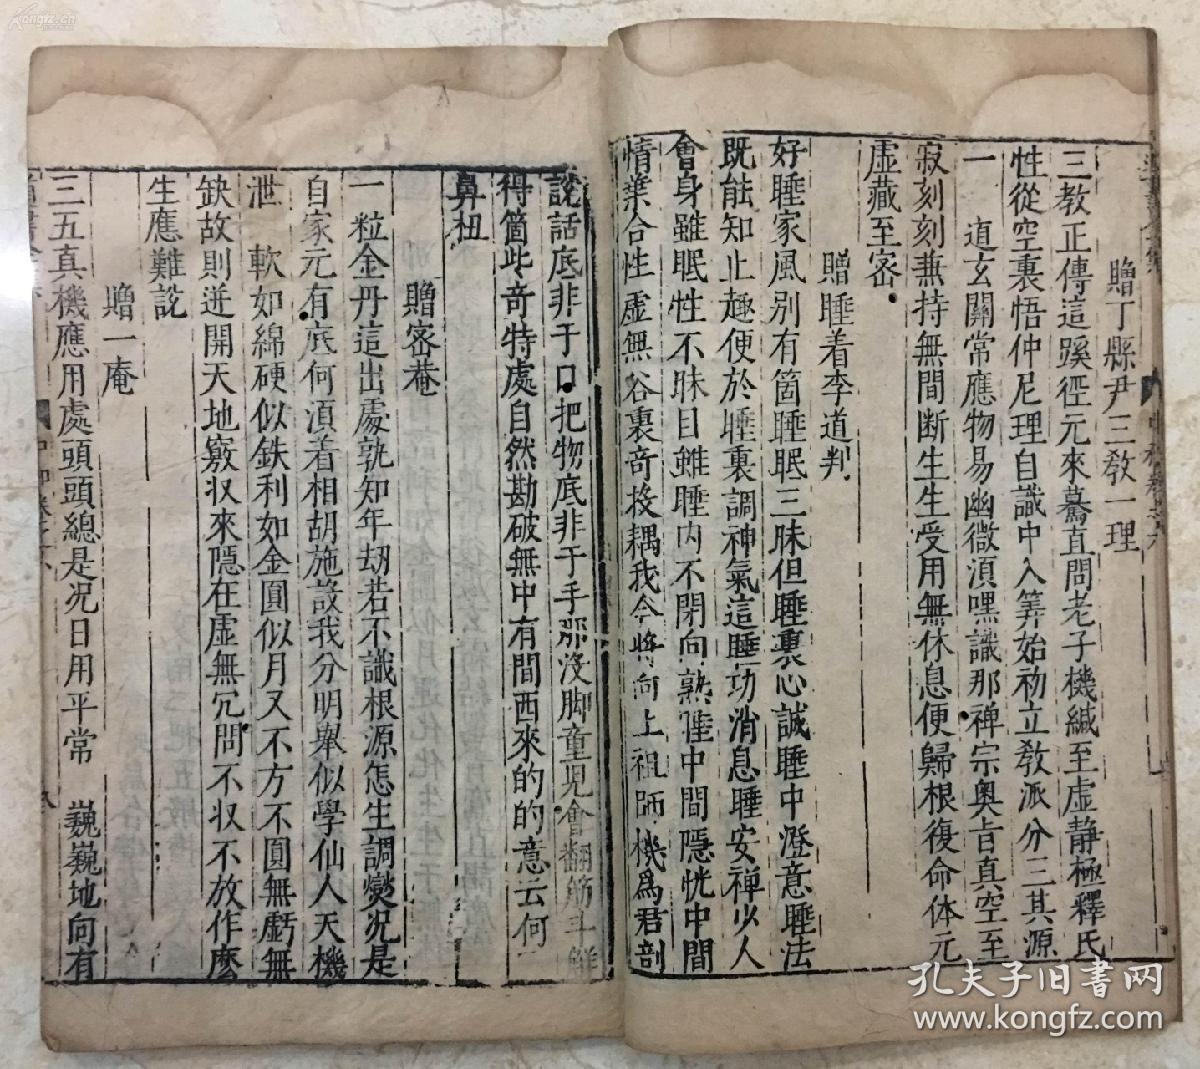 贈丁縣尹三教一理
三教正傳這蹊徑元來驀直問老子機緘至虛靜極釋氏
性從空裏悟仲尼理自識中入筭始初立教派分三其源
一　道玄關常應物易幽微湏嘿識那禪宗奧旨真空至
寂刻刻兼持無間断生生受用無休息便歸根復命体元
虛藏至密
贈睡着李道判
好睡家風別有箇睡眠三昧但睡裏心誠睡中澄意睡法
既能知止趣便於睡裏調神氣這睡功消息睡安禪少人
會身雖眠性不昧目雖睡内不閉向熟睡中間隱恍中間
情業合性虛無谷裏奇投耦我今將向上祖师機爲君剖
說話底非于口把物底非于手那没脚童兒會翻筋斗觧
得箇此奇特處自然勘破無中有間西來的的意云何
鼻扭
贈密菴
一粒金丹這出處孰知年劫若不識根源怎生調爕况是
自家元有底何湏着相胡施設我分明舉似學仙人天機
泄　軟如綿硬似鉄利如金圓似月又不方不圓無虧無
缺故則迸開天地竅収來隱在虛無冗問不収不放作麽
生應難說
贈一庵
三五真機應用處頭頭總是况日用平常　巍巍地向有
孔夫子旧书网
www.kongfz.com
Kongfz.cn